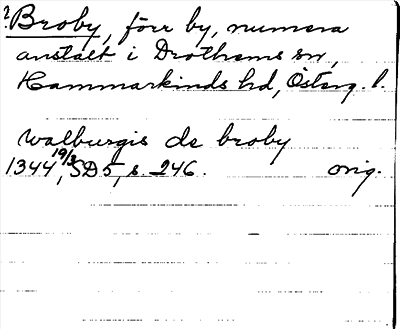 ? Broby, förr by, numera
anstalt i Drothems sn,
Hammarkinds hd, Österg. l.
walburgis de broby
1344 19/3, SD 5, s. 246. orig.